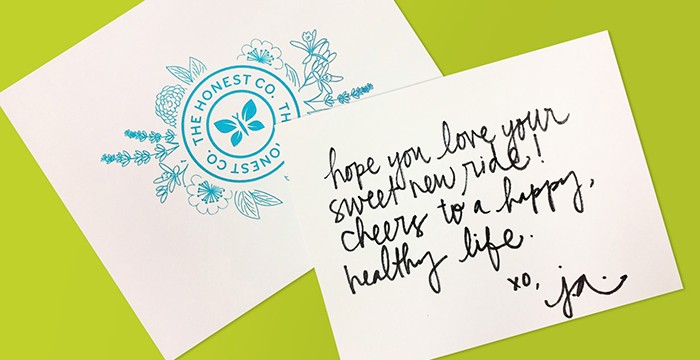 THE HONEST CO. TH
HONEST CO.
hope you love your
sweet new ride!
cheers to a happy,
healthy life.
xo, j.a.